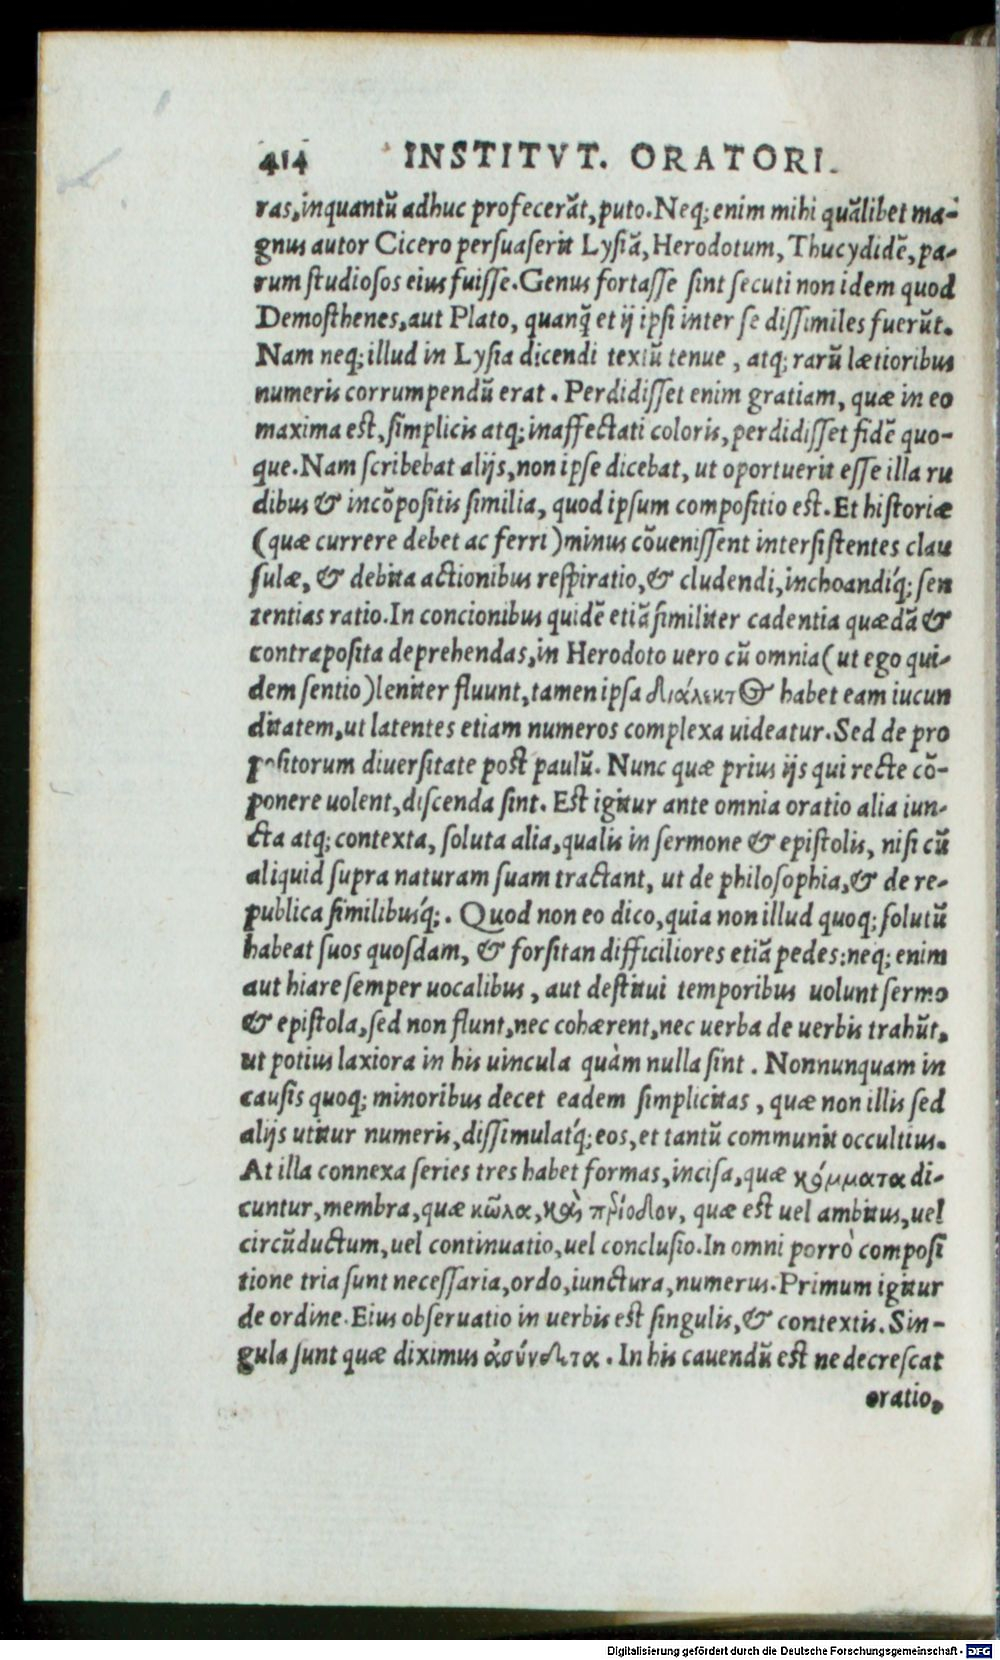 414 INSTITVT. ORATORI.
ras, inquantũ adhuc profecerãt, puto. Neq; enim mihi quãlibet ma-
gnus autor Cicero persuaserit Lysiã, Herodotum, Thucydidẽ, pa-
rum studiosos eius fuisse. Genus fortasse sint secuti non idem quod
Demosthenes, aut Plato, quanq̃ et ij ipsi inter se dissimiles fuerũt.
Nam neq; illud in Lysia dicendi textũ tenue, atq; rarũ lætioribus
numeris corrumpendũ erat. Perdidisset enim gratiam, quæ in eo
maxima est, simplicis atq; inaffectati coloris, perdidisset fidẽ quo-
que. Nam scribebat alijs, non ipse dicebat, ut oportuerit esse illa ru
dibus & incõpositis similia, quod ipsum compositio est. Et historiæ
(quæ currere debet ac ferri) minus cõuenissent intersistentes clau
sulæ, & debita actionibus respiratio, & cludendi, inchoandiq́; sen
tentias ratio. In concionibus quidẽ etiã similiter cadentia quædã &
contraposita deprehendas, in Herodoto uero cũ omnia (ut ego qui-
dem sentio) leniter fluunt, tamen ipsa διάλεκτος habet eam iucun
ditatem, ut latentes etiam numeros complexa uideatur. Sed de pro
positorum diuersitate post paulũ. Nunc quæ prius ijs qui recte cõ-
ponere uolent, discenda sint. Est igitur ante omnia oratio alia iun-
cta atq; contexta, soluta alia, qualis in sermone & epistolis, nisi cũ
aliquid supra naturam suam tractant, ut de philosophia, & de re-
publica similibusq́;. Quod non eo dico, quia non illud quoq; solutũ
habeat suos quosdam, & forsitan difficiliores etiã pedes: neq; enim
aut hiare semper uocalibus, aut destitui temporibus uolunt sermo
& epistola, sed non flunt, nec cohærent, nec uerba de uerbis trahũt.
ut potius laxiora in his uincula quàm nulla sint. Nonnunquam in
causis quoq; minoribus decet eadem simplicitas, quæ non illis sed
alijs utitur numeris, dissimulatq́; eos, et tantũ communit occultius.
At illa connexa series tres habet formas, incisa, quæ κόμματα di-
cuntur, membra, quæ κῶλα, καὶ περίοδον, quæ est uel ambitus, uel
circũductum, uel continuatio, uel conclusio. In omni porrò composi
tione tria sunt necessaria, ordo, iunctura, numerus. Primum igitur
de ordine. Eius obseruatio in uerbis est singulis, & contextis. Sin-
gula sunt quæ diximus ἀσύνδετα. In his cauendũ est ne decrescat
oratio,
Digitalisierung gefördert durch die Deutsche Forschungsgemeinschaft - DFG